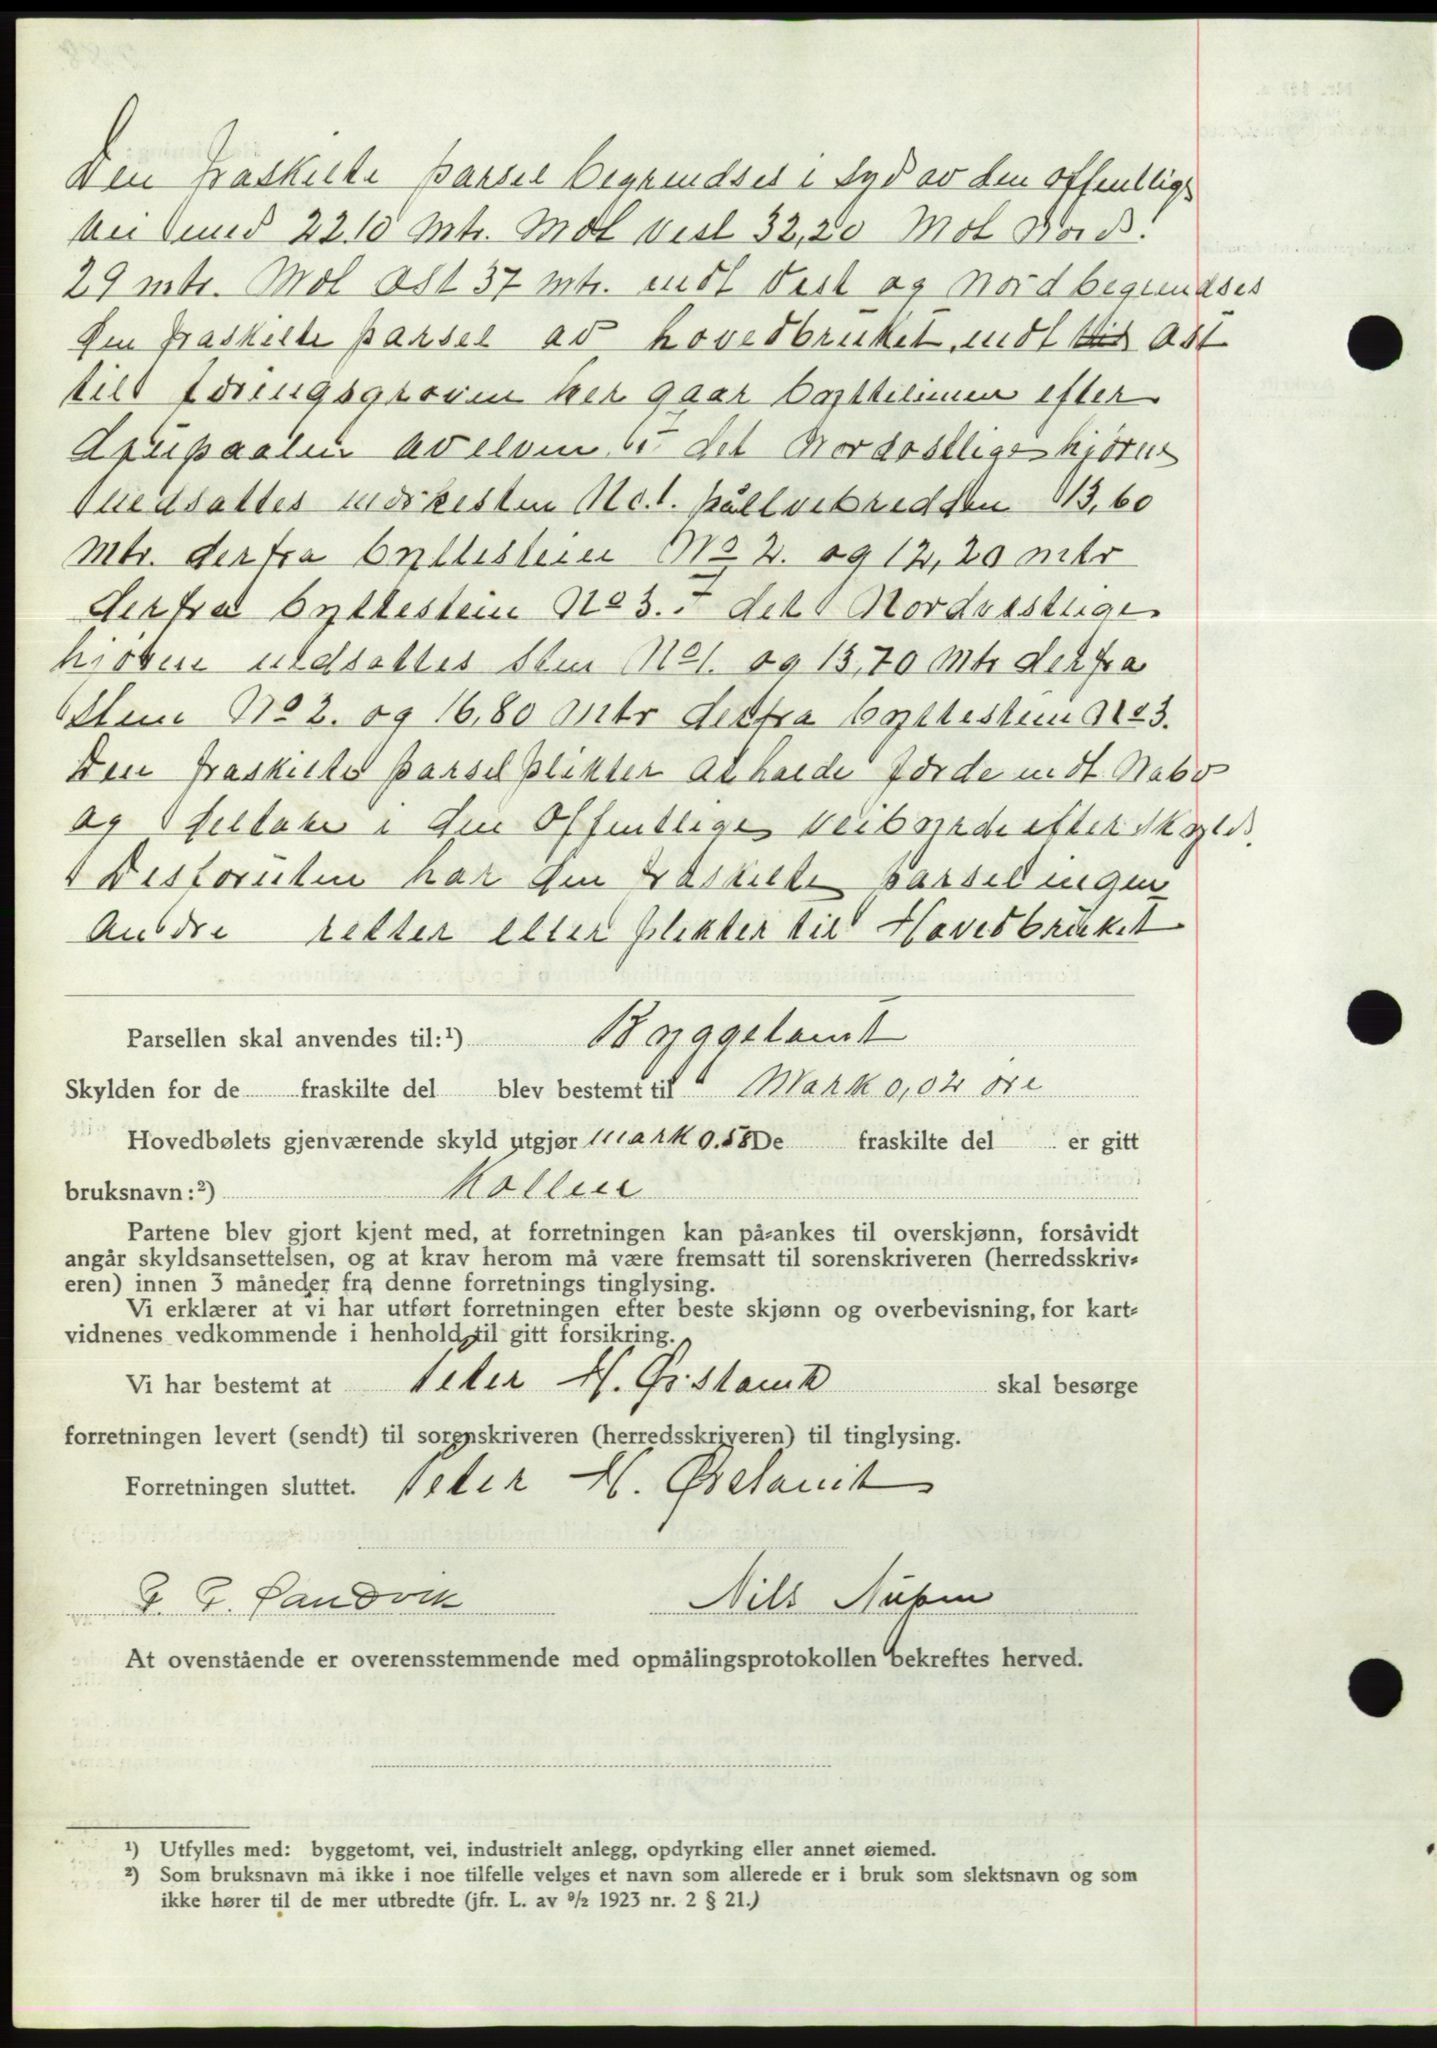 Den fraskilte parsel begrendses i Syd av den offentlige
vei med 22.10 Mtr. Mot vest 32,20 Mot Nord.
29 mtr. Mot Ost 37 mtr. mot Vest og Nord begrendses
den fraskilte parsel av hovedbruket, mot Ost
til føringsgroven her gaar byttelinien efter
av elven i det Nordostlige hjørne
nedsattes merkesten No. 1. på elvebredden 13,60
Mtr. derfra byttestein No 2. og 12,20 mtr
derfra byttestein No 3. I det Nordvestlige
hjørne nedsattes Sten No 1. og 13,70 Mtr derfra
Sten No 2. og 16,80 Mtr derfra byttestein No 3.
Den fraskilte parsel plikter at holde jærde mot Nabo
og deltake i den Offentlige veibyrde efter skyld.
Desforuten har den fraskilte parsel ingen
Andre retter eller plikter til Hovedbruket
Parsellen skal anvendes til:¹) Byggetomt
Skylden for de fraskilte del blev bestemt til Mark 0,02 øre
Hovedbølets gjenværende skyld utgjør mark 0.58 De fraskilte del er gitt
bruksnavn:²) Kollen
Partene blev gjort kjent med, at forretningen kan på-ankes til overskjønn, forsåvidt
angår skyldsansettelsen, og at krav herom må være fremsatt til sorenskriveren (herredsskriv-
eren) innen 3 måneder fra denne forretnings tinglysing.
Vi erklærer at vi har utført forretningen efter beste skjønn og overbevisning, for kart-
vidnenes vedkommende i henhold til gitt forsikring.
Vi har bestemt at Peter H. Ørstavik skal besørge
forretningen levert (sendt) til sorenskriveren (herredsskriveren) til tinglysing.
Forretningen sluttet. Peter H. Ørstavik
P. P. Sandvik Nils Nupen
At ovenstående er overensstemmende med opmålingsprotokollen bekreftes herved.
¹) Utfylles med: byggetomt, vei, industrielt anlegg, opdyrking eller annet øiemed.
²) Som bruksnavn må ikke i noe tilfelle velges et navn som allerede er i bruk som slektsnavn og som
ikke hører til de mer utbredte (jfr. L. av ⁹/₂ 1923 nr. 2 § 21.)